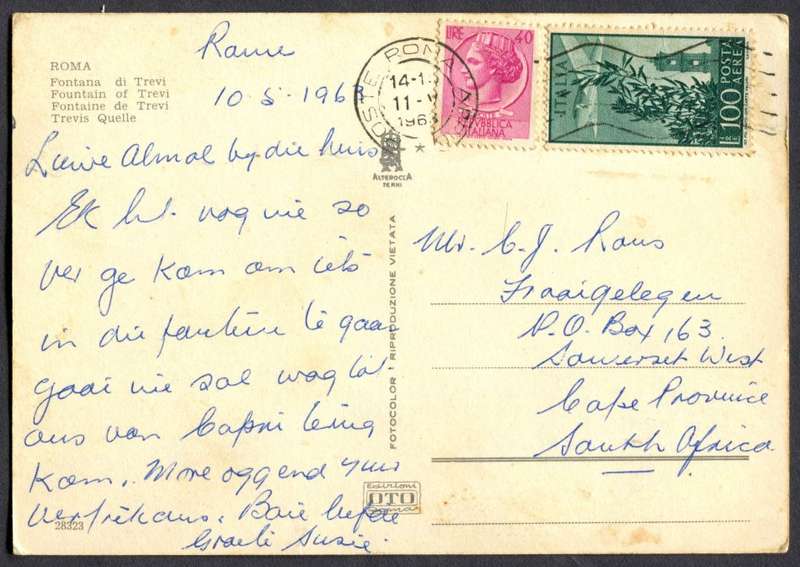 ROMA
Fontana di Trevi
Fountain of Trevi
Fontaine de Trevi
Trevis Quelle
Rome
10.5.1963
Liewe Almal by die huis
Ek het nog nie so
ver ge kom om iets
in die fonteine te gaan
gooi nie sal wag tot
ons van Capri terug
kom. More oggend 7uur
vertrek ons. Baie liefde
Groete Susie.
28323
LIRE 40
REPUBBLICA
ITALIANA
ITALIA
POSTA
AEREA
LIRE 100
POSTE ROMA
14-1
11-V
1963
ALTEROCCA
TERNI
FOTOCOLOR - RIPRODUZIONE VIETATA
Edizioni
OTO
Roma
Mr. C. J. Rous
Fraaigelegen
P.O. Box 163
Somerset West
Cape Province
South Africa